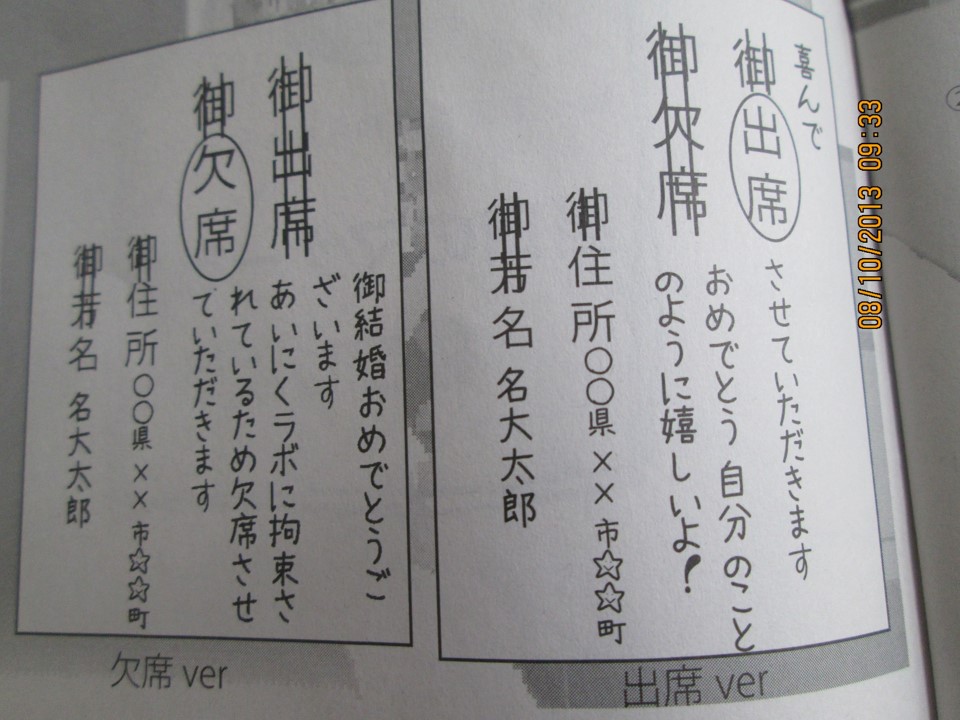 喜んで
御出席
させていただきます
おめでとう 自分のこと
のように嬉しいよ!
御欠席
御住所○○県××市☆☆町
御芳名 名大太郎
出席 ver
御結婚おめでとうご
ざいます
御出席
あいにくラボに拘束さ
れているため欠席させ
ていただきます
御欠席
御住所○○県××市☆☆町
御芳名 名大太郎
欠席 ver
08/10/2013 09:33